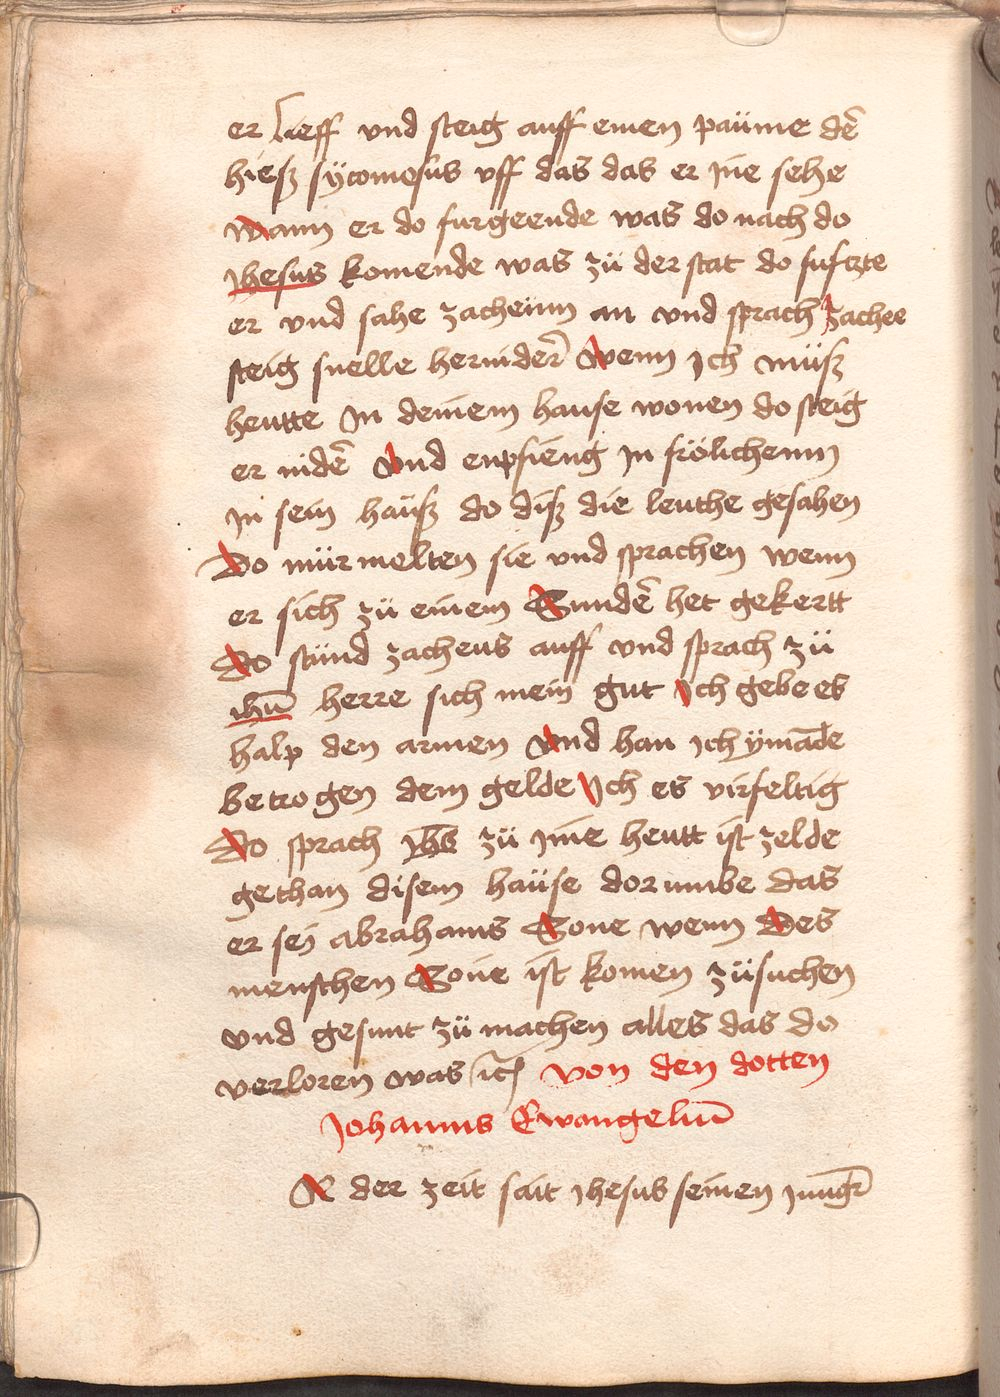 er lieff vnd steig auff einen paüme dē
hiesz sÿcomosus vff das das er jne sehe
wann er do furgeende was do nach do
jhesus komende was zü der stat do sufczte
er vnd sahe zacheum an vnd sprach zachee
steig snelle hernider̄ wenn jch müsz
heutte jn deinem hause wonen do steig
er nidē vnd enpfieng jn frölichenn
jn sein hausz do disz die leuthe gesahen
Do mürmelten sie vnd sprachen wenn
er sich zü einem Sundē het gekertt
Do stünd zacheus auff vnd sprach zü
ihū herre sich mein gut jch gebe es
halp den armen vnd han jch ÿmāde
betrogen dem gelde jch es virfeltig
Do sprach jhs zü jme heutt ist zelde
gethan disem haüse dorumbe das
er seÿ abrahams Sone wenn Des
menschen Sone ist komen züsuchen
vnd gesunt zü machen alles das do
verloren was ꝛc von den dotten
Johannes Ewangeliū
A der zeit sait jhesus seinen jungr̄